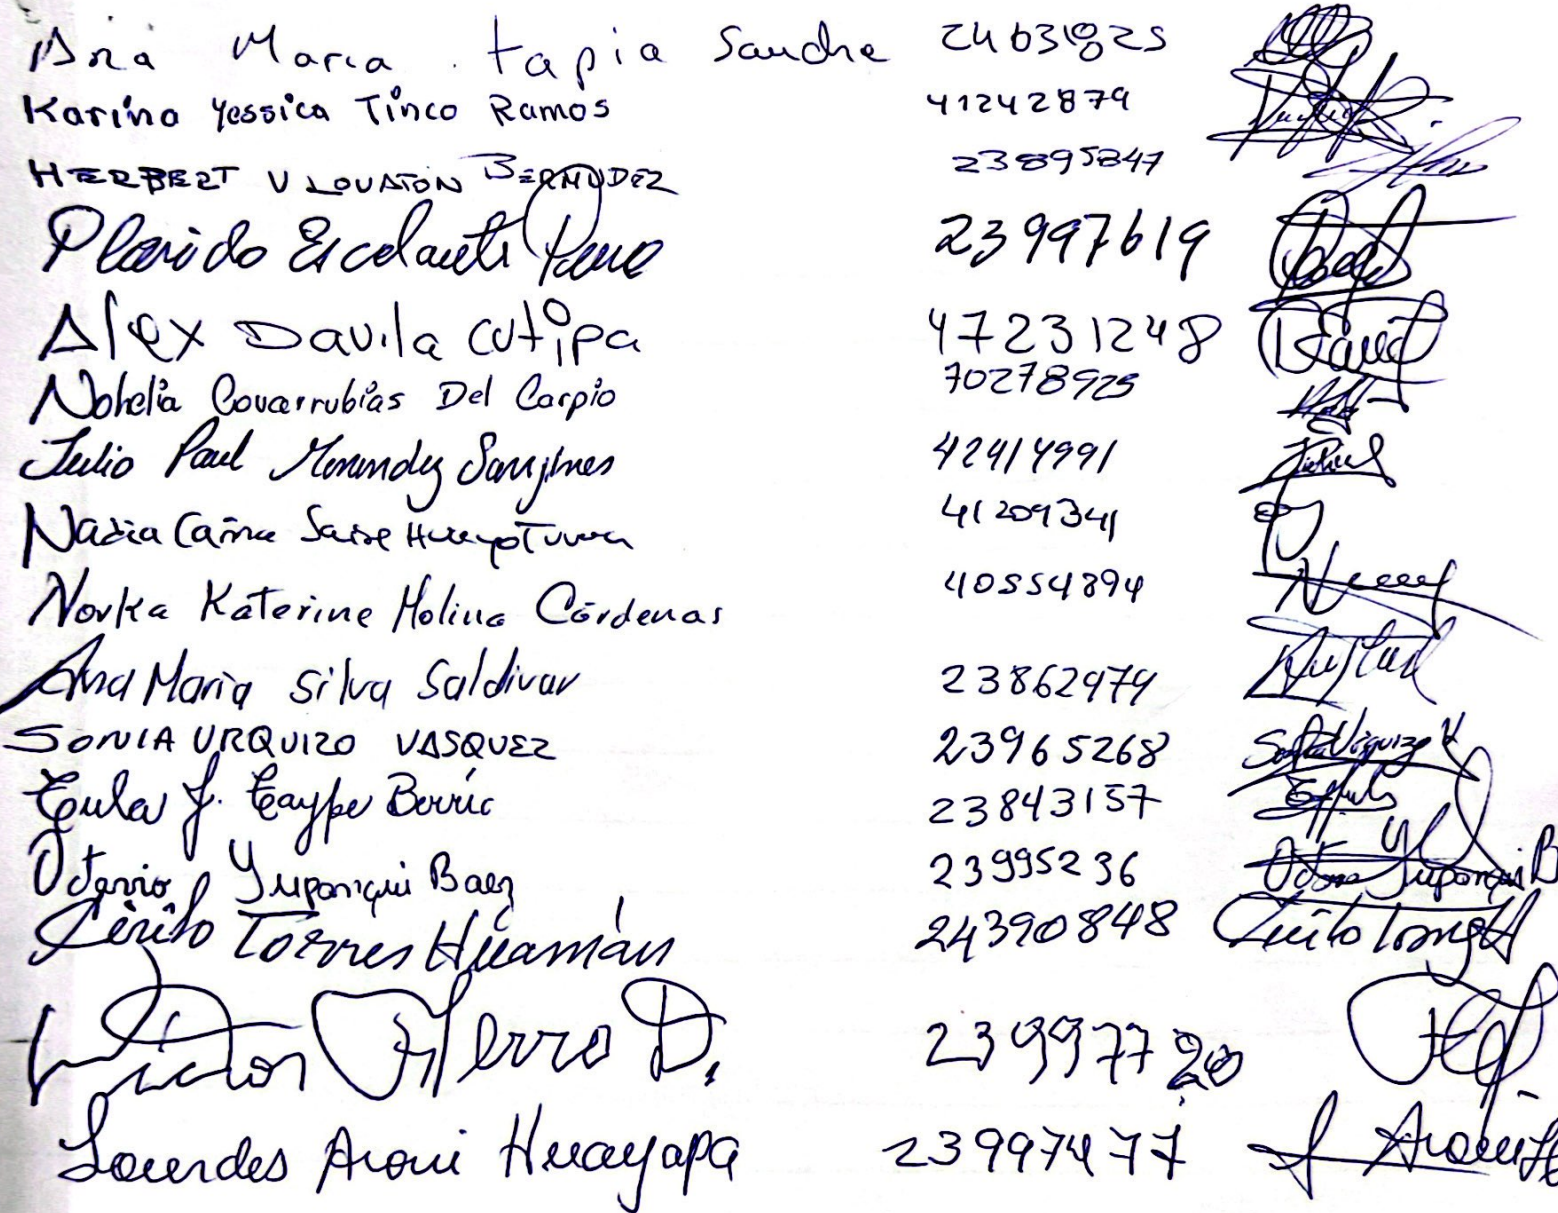 Ana Maria tapia Sanche 24631825
Karina Yessica Tinco Ramos 41242879
HERBERT V LOUATON BERMUDEZ 23895847
Placido Escalante 23997619
Alex Davila Cutipa 47231248
Nohelia Covarrubias Del Carpio 70278925
Julio Paul Menendez Sanjines 42414991
Nadia 41209341
Novka Katerine Molina Cárdenas 40554894
Ana Maria Silva Saldivar 23862979
SONIA URQUIZO VASQUEZ 23965268 Sonia Urquizo V
J. Taype Berrio 23843157
Otavio Yupanqui Baez 23995236 Yupanqui B
Cirilo Torres Huamán 24390848 Cirilo
Victor Fierro D. 23997720
Lourdes Araui Huayapa 23997477